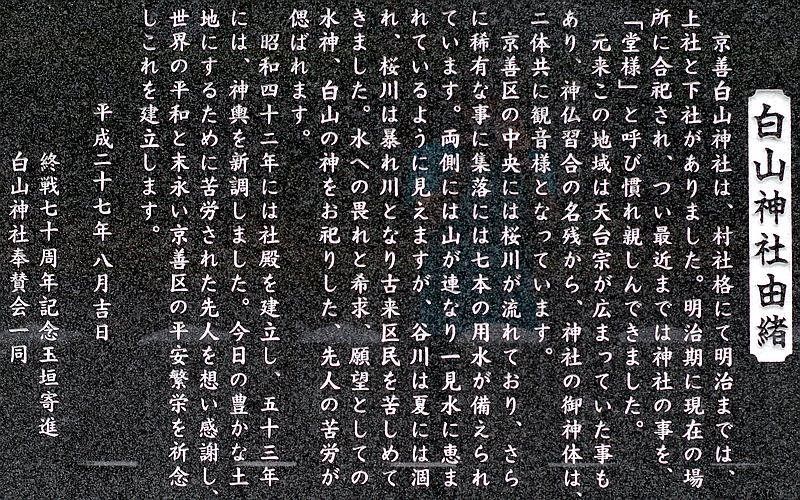 白山神社由緒
京善白山神社は、村社格にて明治までは、
上社と下社がありました。明治期に現在の場
所に合祀され、つい最近までは神社の事を、
「堂様」と呼び慣れ親しんできました。
元来この地域は天台宗が広まっていた事も
あり、神仏習合の名残から、神社の御神体は、
二体共に観音様となっています。
京善区の中央には桜川が流れており、さら
に稀有な事に集落には七本の用水が備えられ
ています。両側には山が連なり一見水に恵ま
れているように見えますが、谷川は夏には涸
れ、桜川は暴れ川となり古来区民を苦しめて
きました。水への畏れと希求、願望としての
水神、白山の神をお祀りした、先人の苦労が
偲ばれます。
昭和四十二年には社殿を建立し、五十三年
には、神輿を新調しました。今日の豊かな土
地にするために苦労された先人を想い感謝し、
世界の平和と末永い京善区の平安繁栄を祈念
しこれを建立します。
平成二十七年八月吉日
終戦七十周年記念玉垣寄進
白山神社奉賛会一同